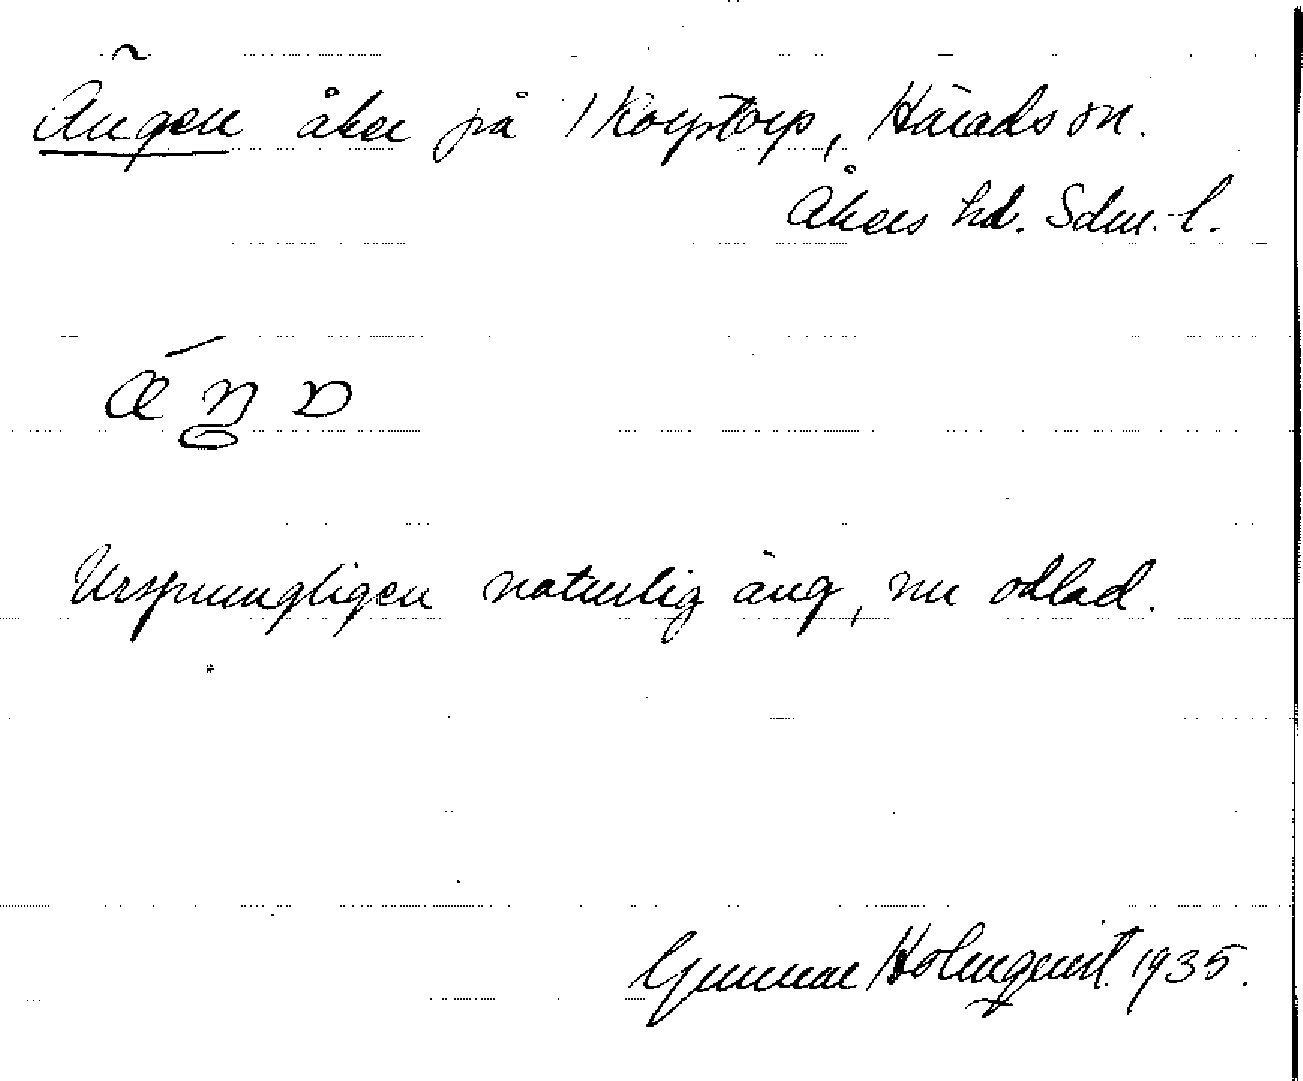 Ängen åker på Korptorp, Härads sn.
Åkers hd. Sdm. l.
Ursprungligen naturlig äng, nu odlad.
Gunnar Holmquist. 1935.